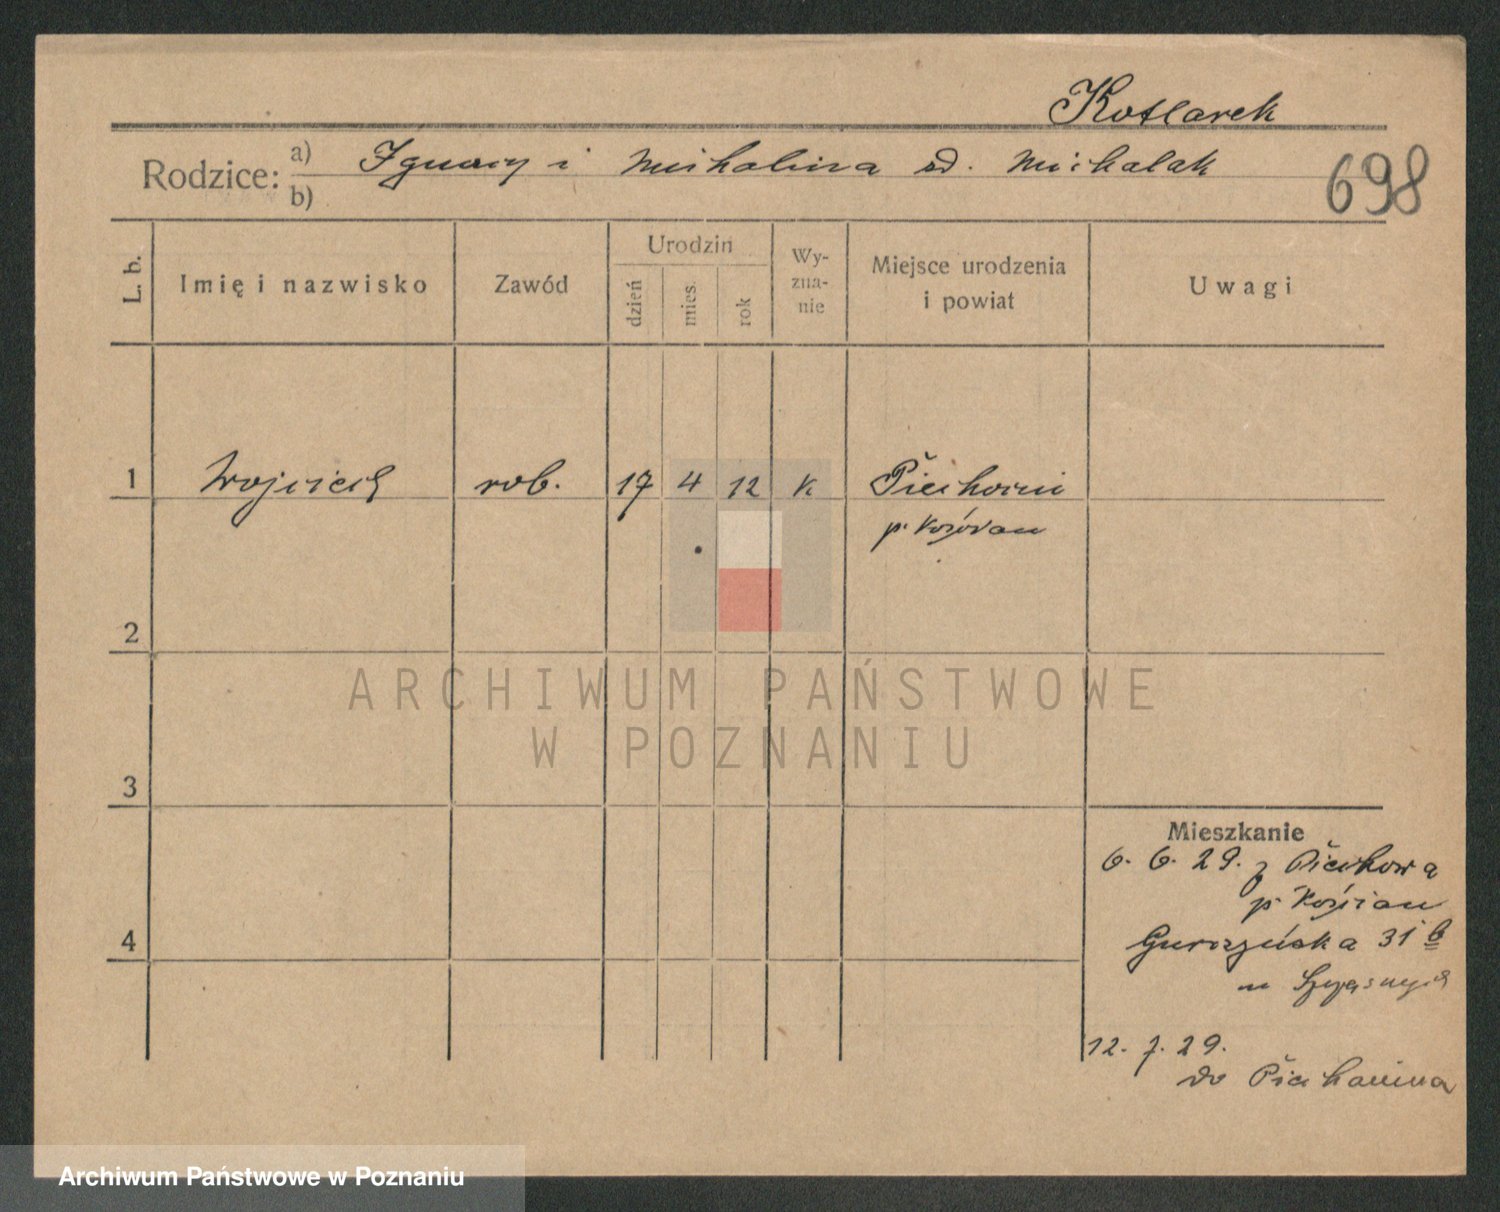 Kotlarek
Rodzice: a) Ignacy i Michalina zd. Michalak
b)
698
L. b.
Imię i nazwisko
Zawód
Urodzin
dzień
mies.
rok
Wy-
zna-
nie
Miejsce urodzenia
i powiat
Uwagi
1 Wojciech rob. 17 4 12 k Piechanin
p. Kościan
2
3
4
ARCHIWUM PAŃSTWOWE
W POZNANIU
Mieszkanie
6. 6. 29. z
p. Kościan
Gurczyńska 31 b
u
12. 7. 29.
do Piechanina
Archiwum Państwowe w Poznaniu